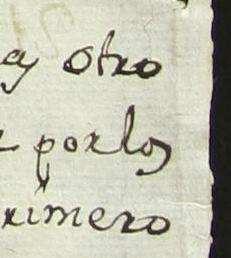 ay otro
por los
rimero